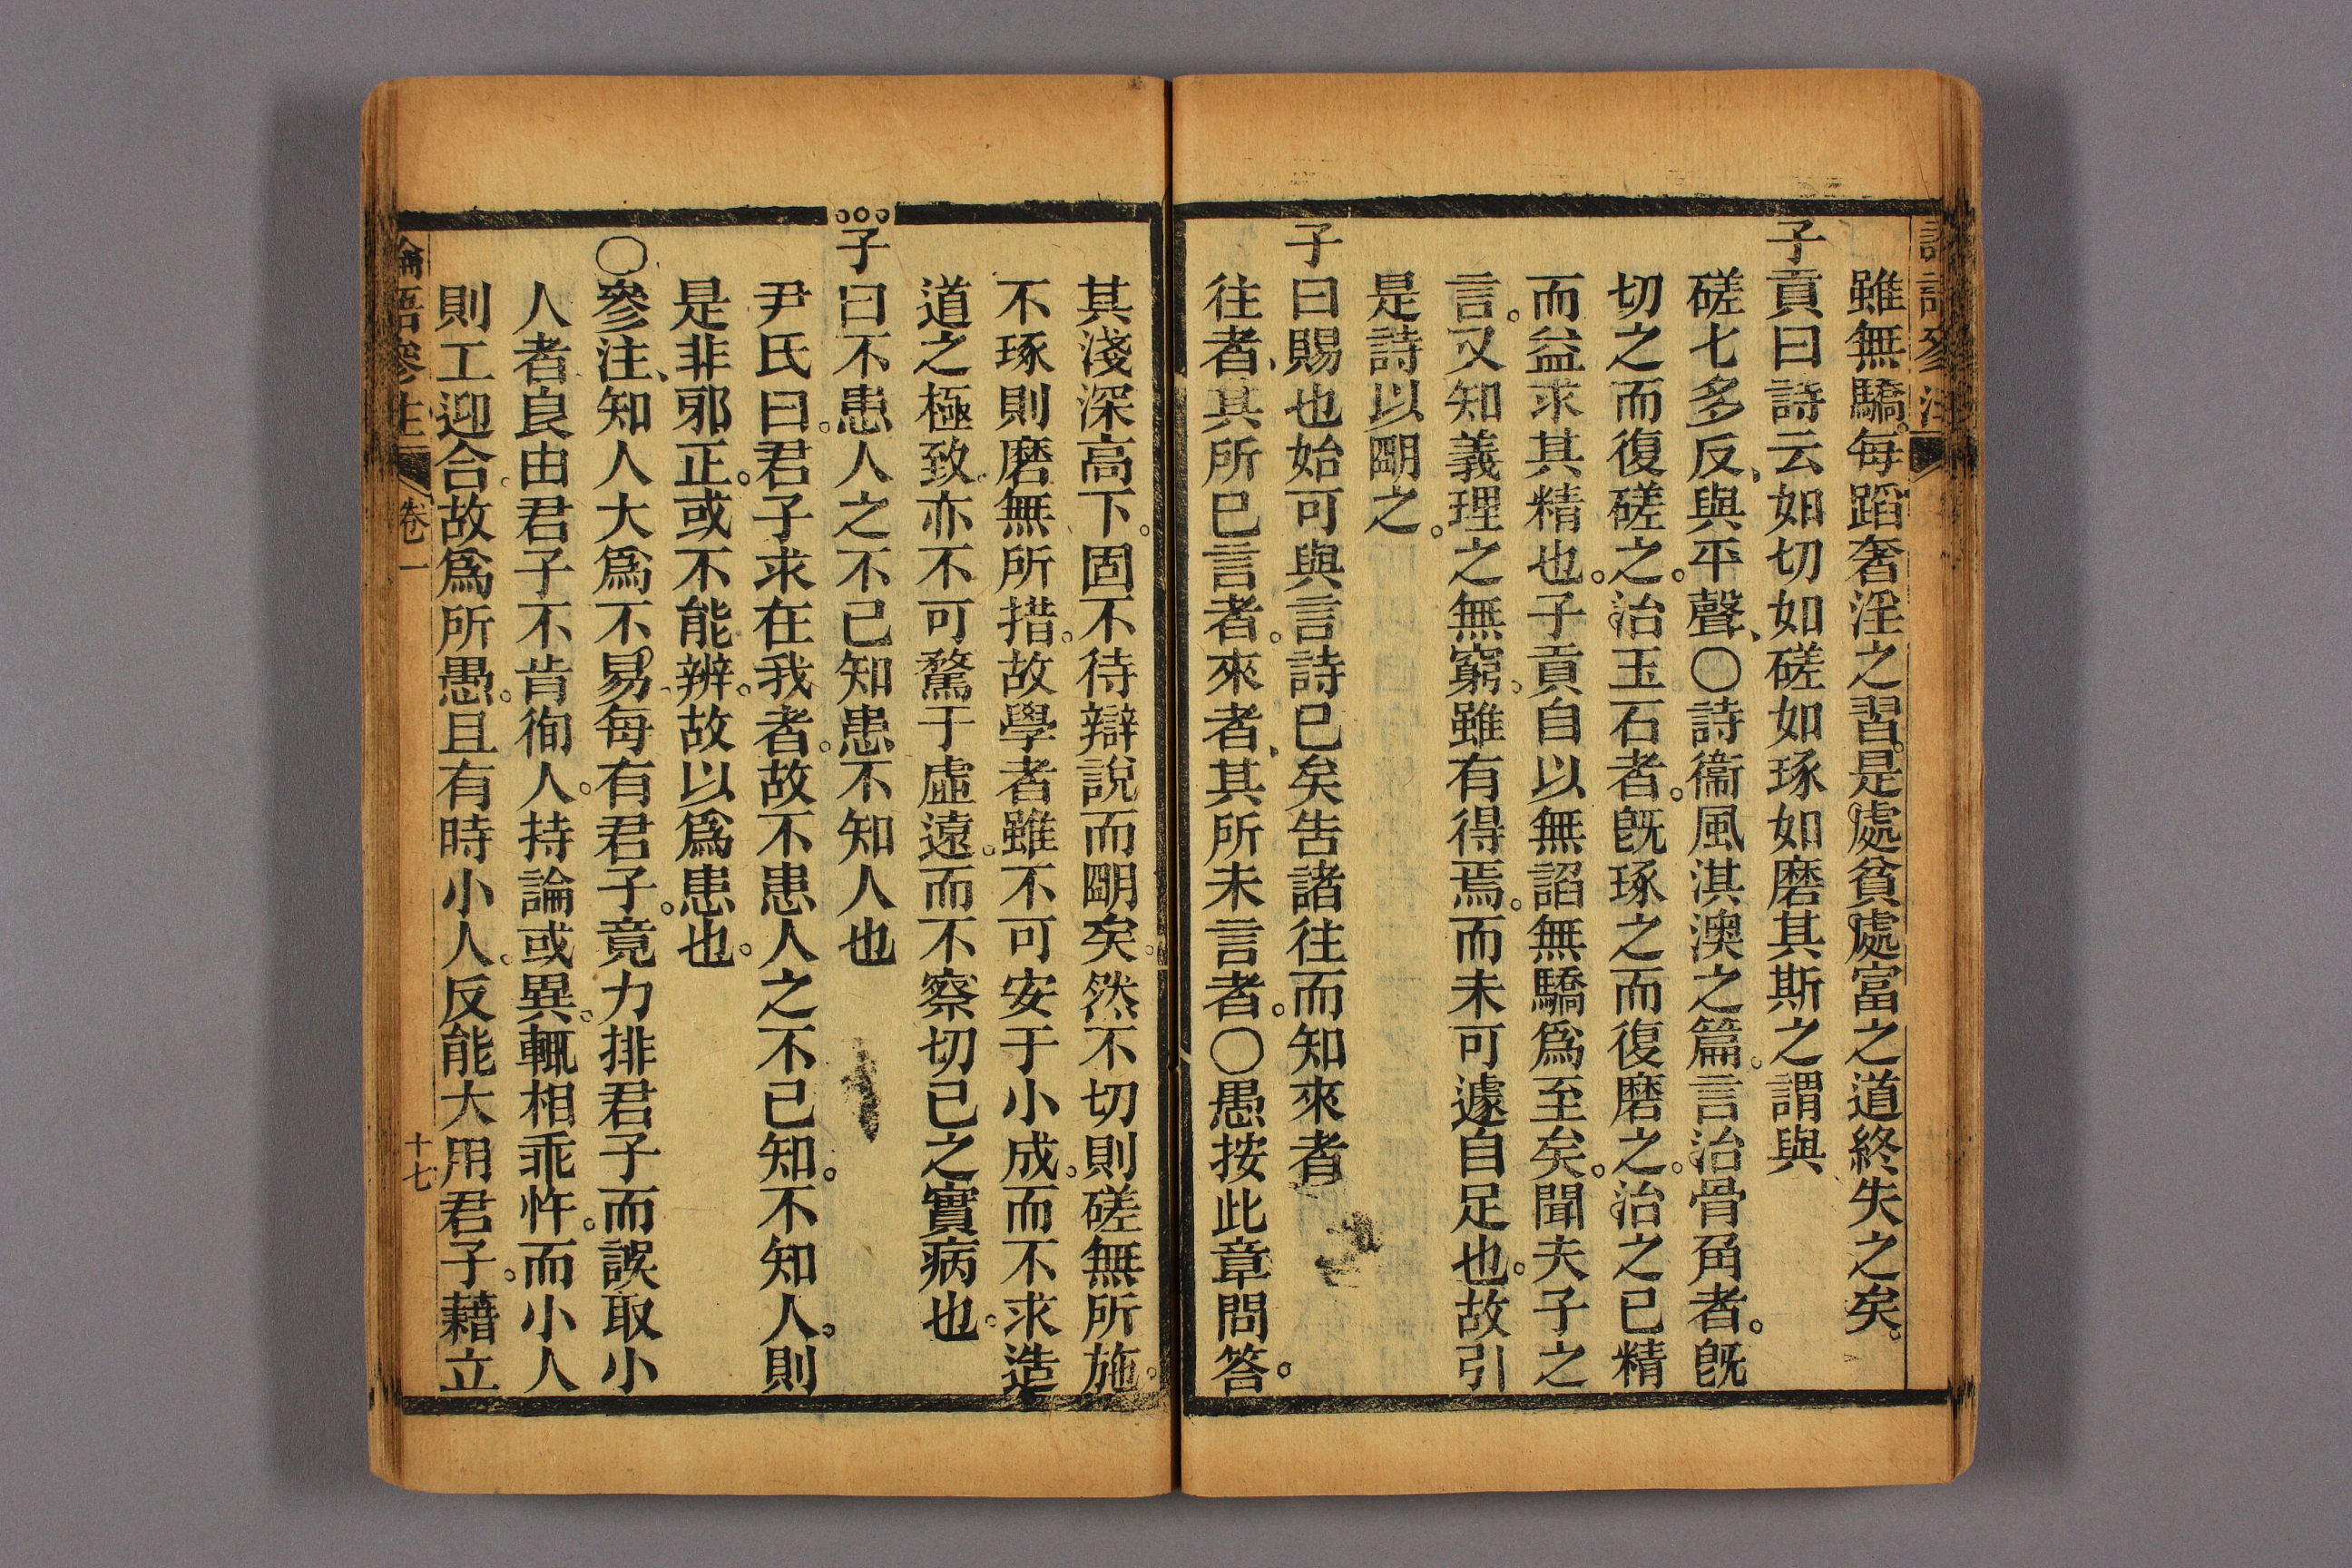 雖無驕。每蹈奢淫之習。是處貧處富之道終失之矣。
子貢曰詩云如切如磋如琢如磨其斯之謂與
磋七多反、與平聲、〇詩衞風淇澳之篇。言治骨角者。旣
切之而復磋之。治玉石者。旣琢之而復磨之。治之已精
而益求其精也。子貢自以無諂無驕爲至矣。聞夫子之
言。又知義理之無窮。雖有得焉。而未可遽自足也。故引
是詩以朙之。
子曰賜也始可與言詩已矣告諸往而知來者
往者、其所已言者。來者、其所未言者。〇愚按此章問答。
其淺深高下。固不待辯說而朙矣。然不切則磋無所施。
不琢則磨無所措。故學者雖不可安于小成。而不求造
道之極致。亦不可騖于虛遠。而不察切己之實病也。
子曰不患人之不己知患不知人也
尹氏曰。君子求在我者。故不患人之不己知。不知人。則
是非邪正。或不能辨。故以爲患也。
〇參注、知人大爲不易。每有君子。竟力排君子而誤取小
人者良由君子不肯徇人。持論或異。輒相乖忤。而小人
則工迎合。故爲所愚。且有時小人。反能大用君子。藉立
論語參注
卷一
十七